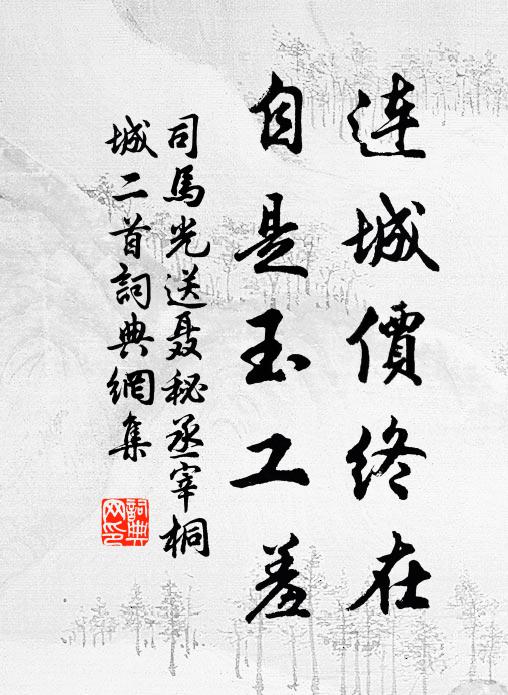 連城價終在
自是玉工羞
司馬光送聂秘丞宰桐
城二首詞典網集
詞典
网印